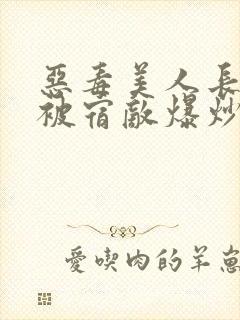 惡毒美人長
被宿敵爆炒
愛喫肉的羊崽